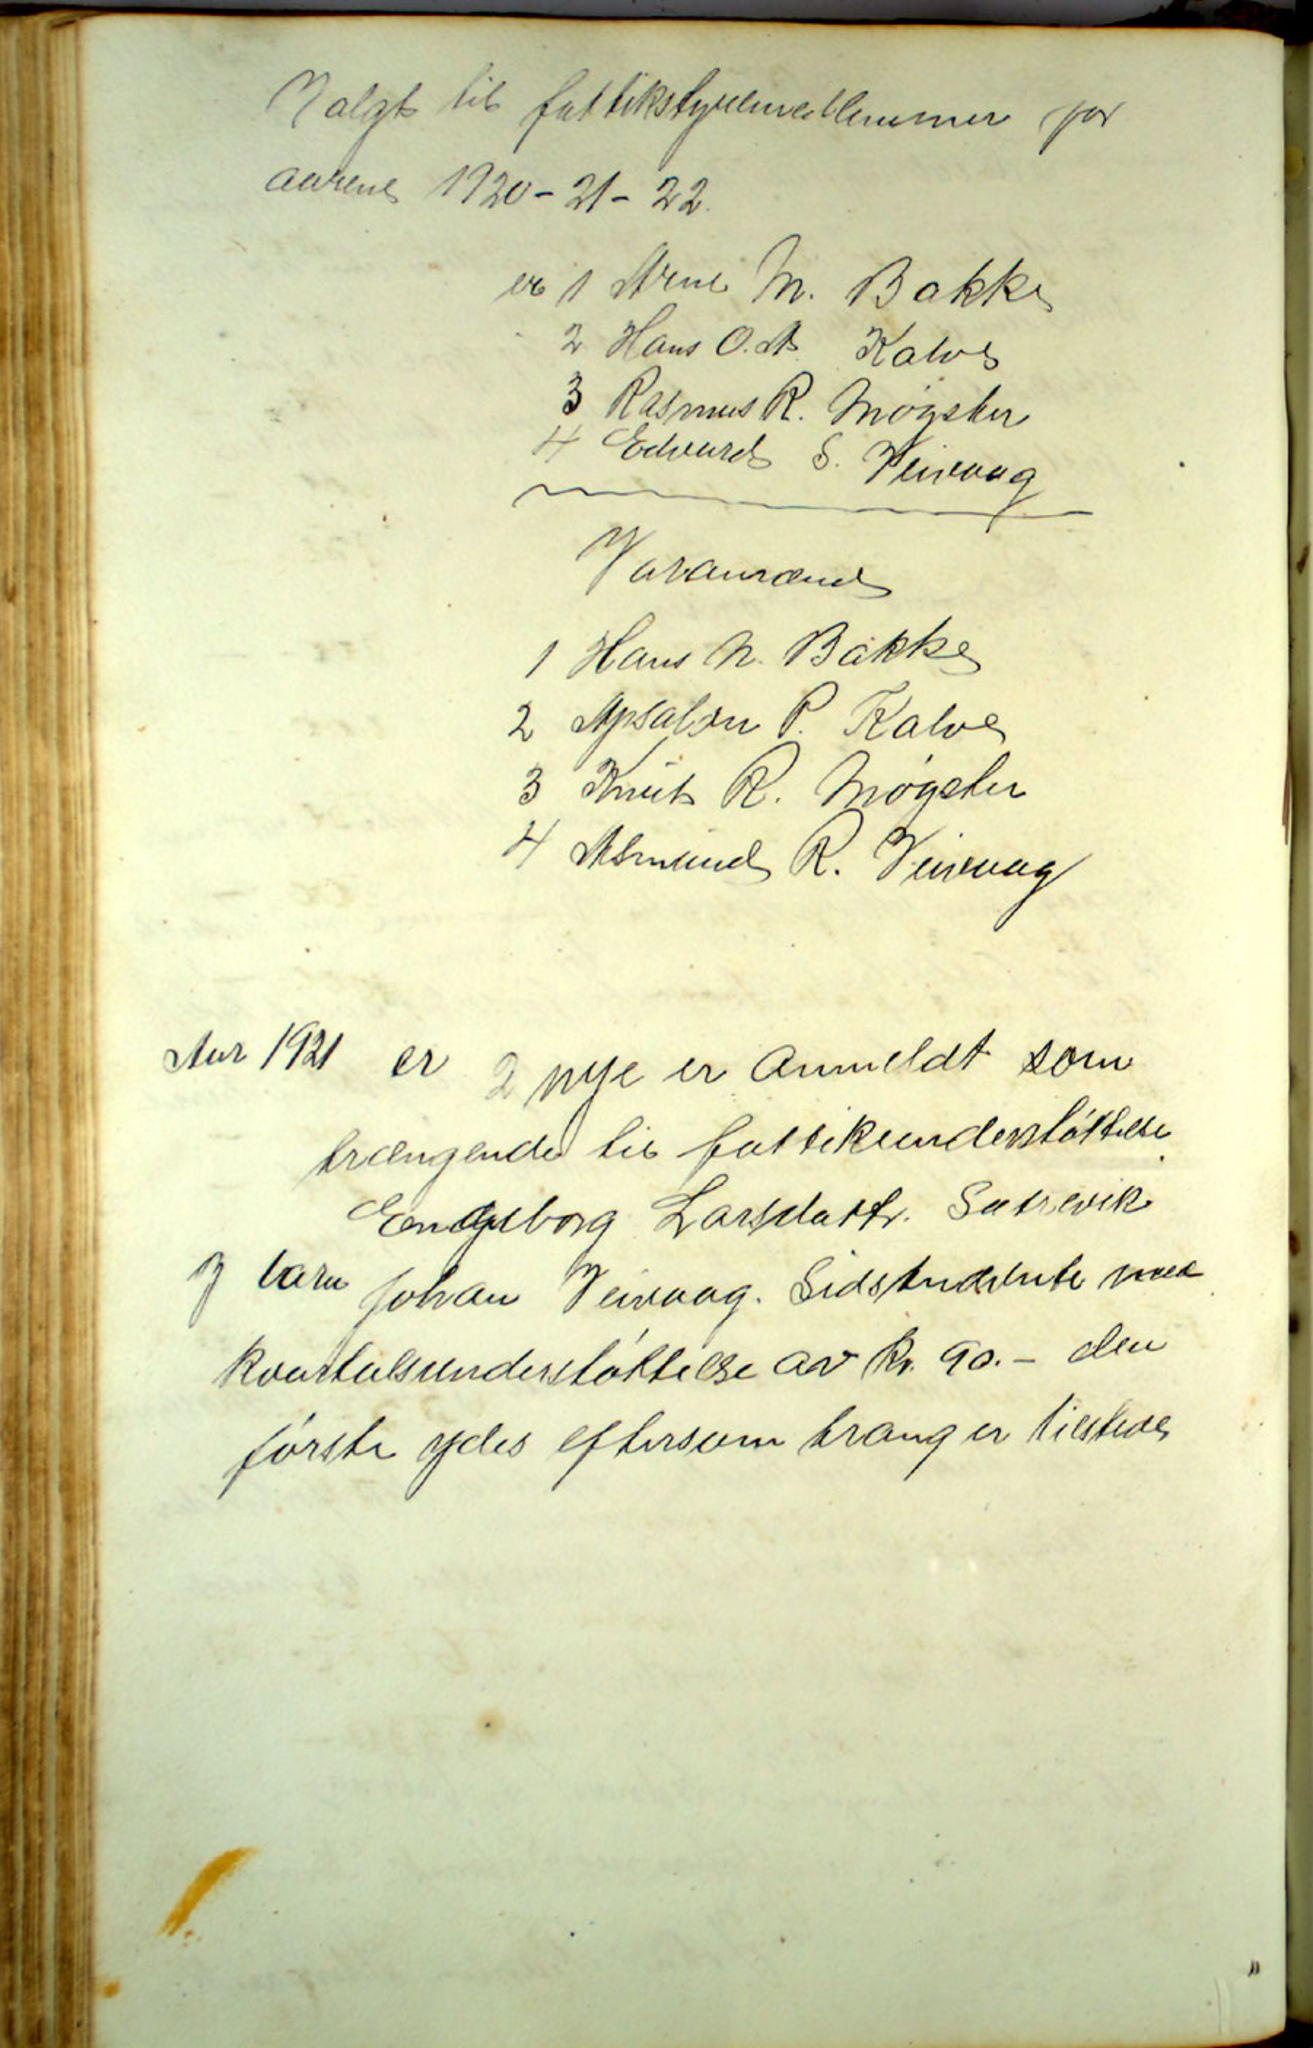 Valgt til fattikstyremedlemmer for
aarene 1920-21-22.
er 1 Arne M. Bakke
2 Hans O. A. Kalve
3 Rasmus R. Møgster
4 Edvard S. Veivaag
Varamænd
1 Hans N. Bakke
2 Apsalon P. Kalve
3 Knut R. Møgster
4 Asmund R. Veivaag
Aar 1921 er 2 nye er anmeldt som
trængende til fattikunderstøttelse
Engeborg Larsdattr. Satrevik
barn Johan Veivaag. Sidstnævnte med
kvartalsunderstøttelse av kr. 90.- den
første ydes eftersom trang er tilstede